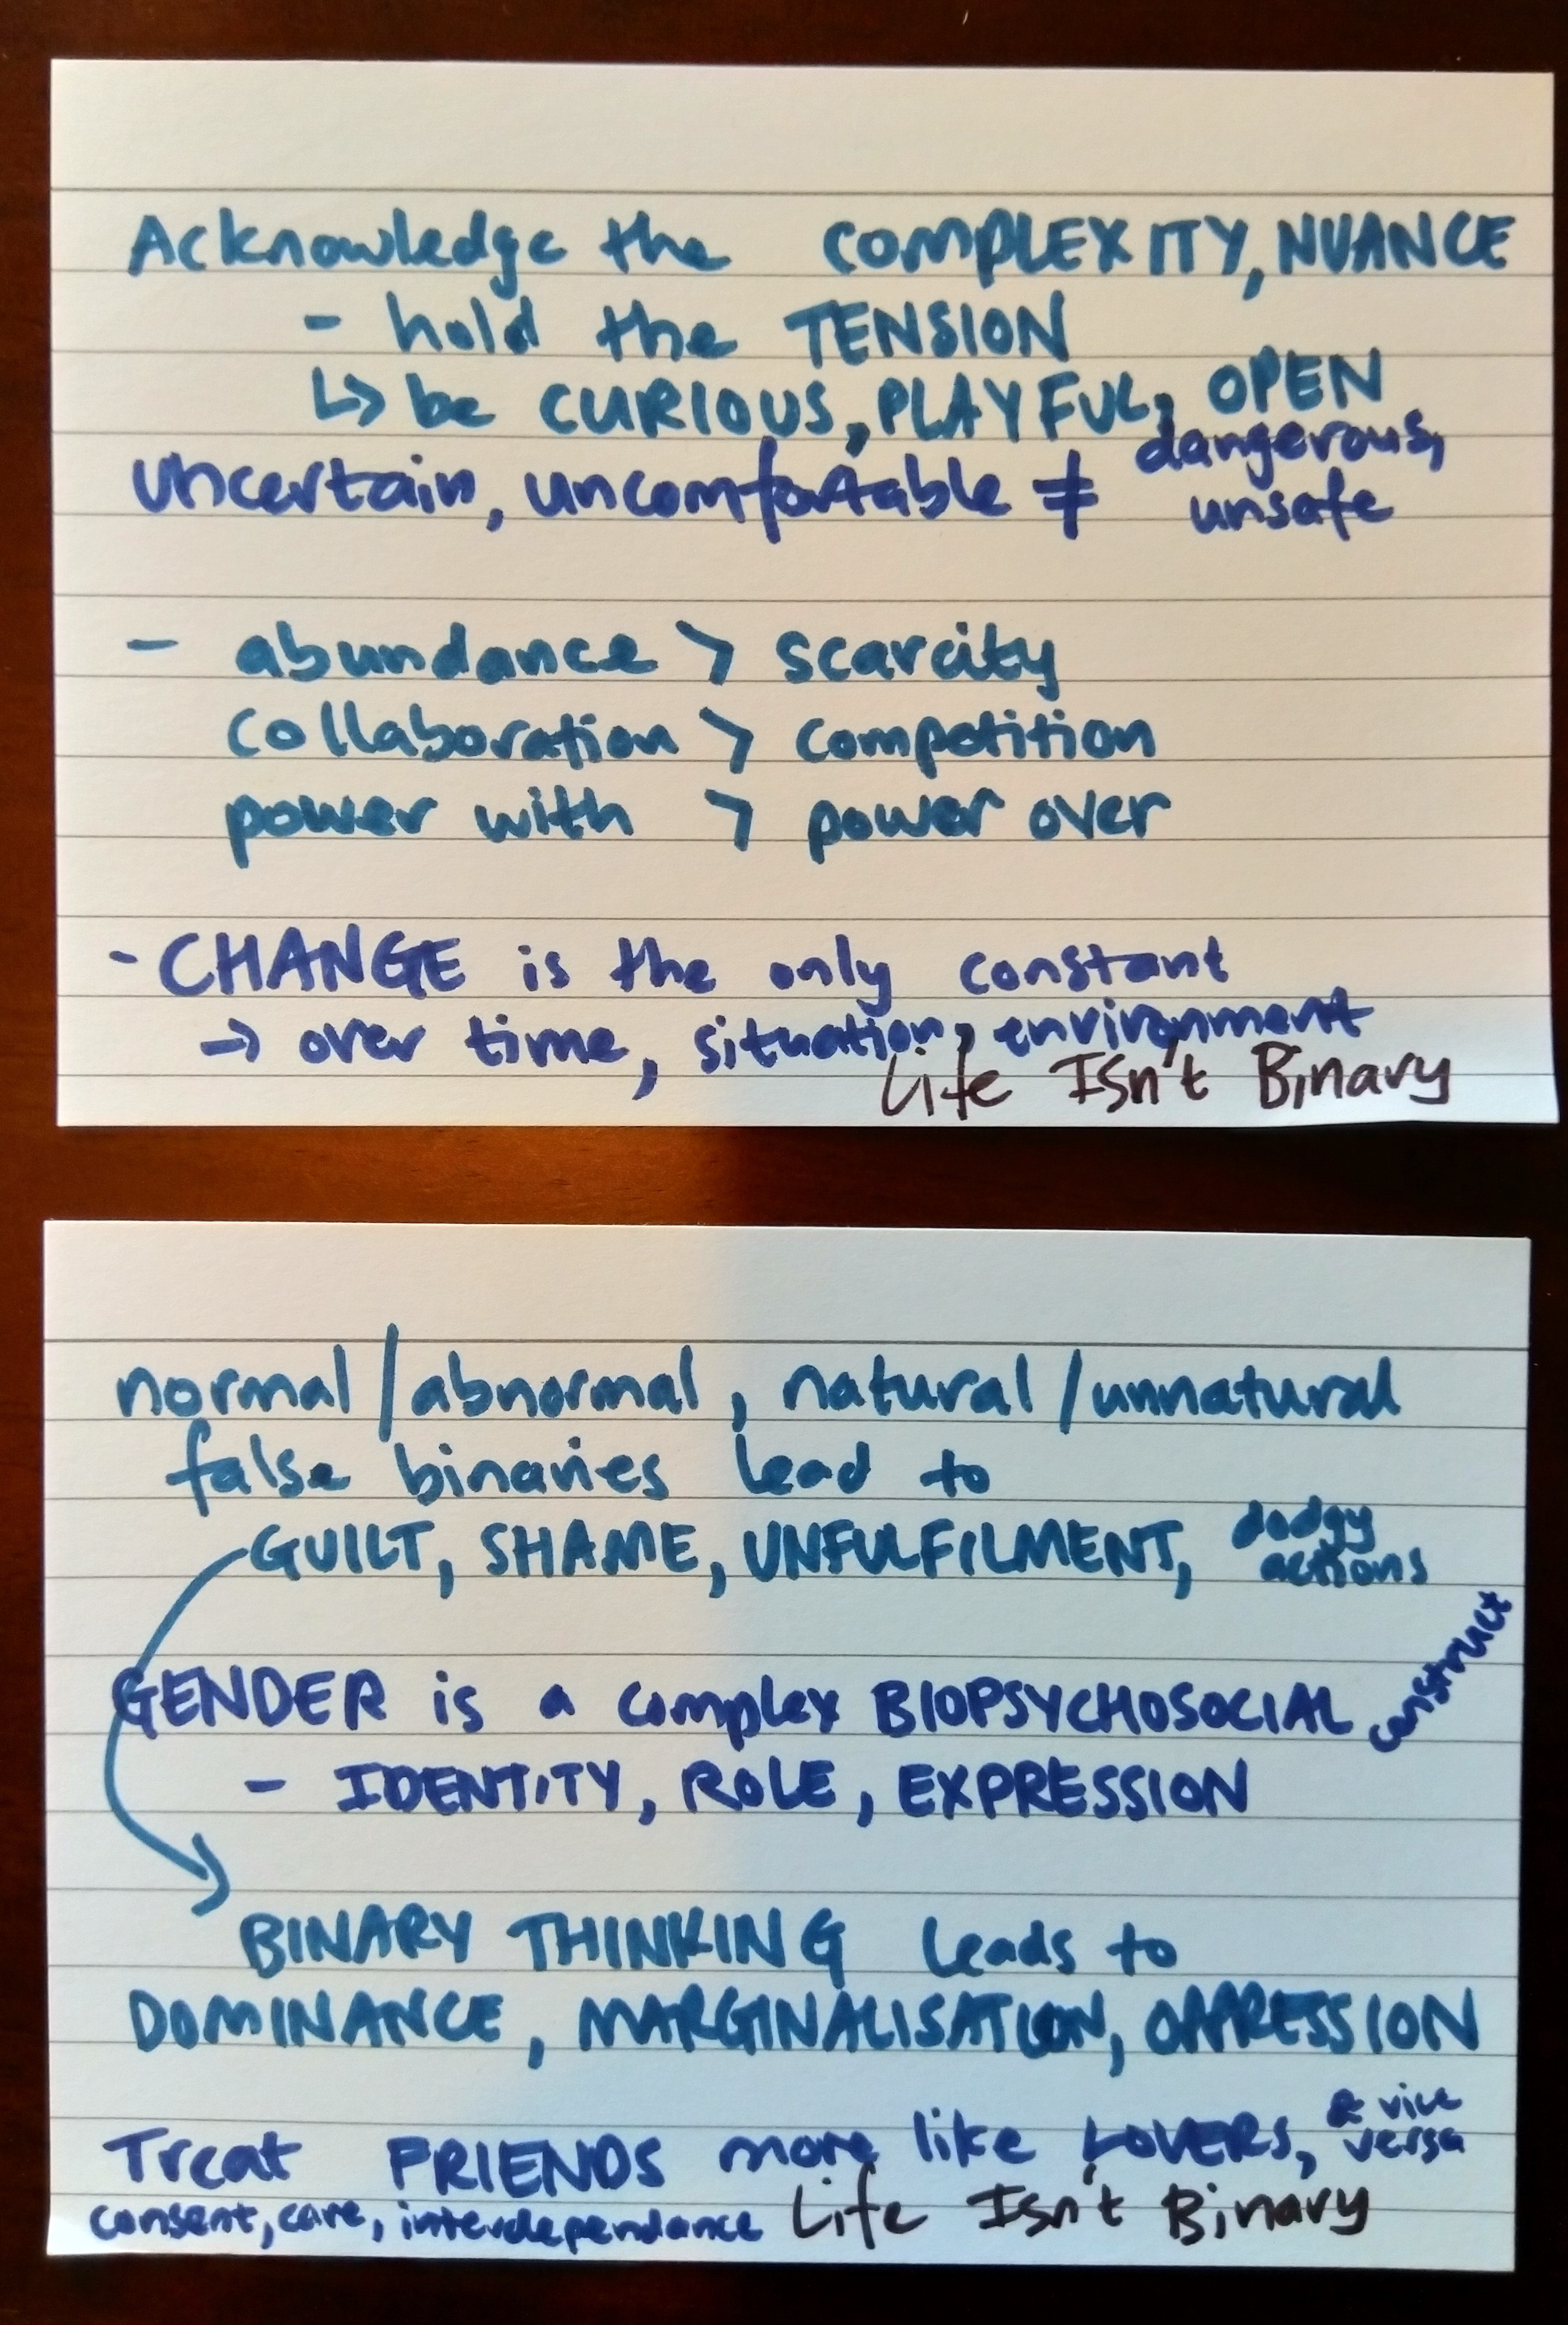 Acknowledge the COMPLEXITY, NUANCE
- hold the TENSION
↳ be CURIOUS, PLAYFUL, OPEN
uncertain, uncomfortable ≠ dangerous, unsafe
- abundance > scarcity
collaboration > competition
power with > power over
- CHANGE is the only constant
→ over time, situation, environment
Life Isn't Binary
normal/abnormal, natural/unnatural
false binaries lead to
GUILT, SHAME, UNFULFILMENT, dodgy actions
GENDER is a complex BIOPSYCHOSOCIAL construct
- IDENTITY, ROLE, EXPRESSION
BINARY THINKING leads to
DOMINANCE, MARGINALISATION, OPPRESSION
Treat FRIENDS more like LOVERS, & vice versa
consent, care, interdependance
Life Isn't Binary